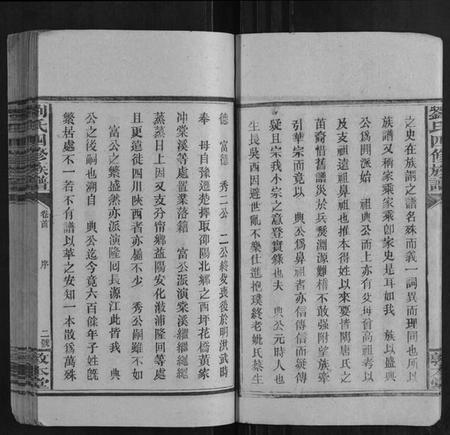 劉氏四修族譜
之史在族謂之譜名殊而義一詞異而理同也所以
族譜又稱家乘家乘即家史是耳如我 族以盛興
公為開派始 祖興公而上亦有父母曾高祖考以
及支祖遠祖鼻祖也推本得姓以來要皆陶唐氏之
苗裔惜舊譜災於兵燹淵源難稽不敢強附望族牽
引華宗而竟以 興公為鼻祖者亦信傳信而疑傳
疑且宗我小宗之意登實錄也夫 興公元時人也
生長吳西因避世亂不樂仕進抱璞終老妣氏蔡生
敦本堂
德 富德 秀二公 二公終歿葬後於明洪武時
奉 母自豫遷楚擇取邵陽北鄉之西坪花橋黃家
冲棠溪等處置業落籍 富公派演棠溪繼繼繩繩
蒸蒸日上因又支分甯鄉益陽安化漵浦隆回等處
且更遠徙四川陝西者亦屬不少 秀公嗣雖不如
富公之繁盛然亦派演隆回長源江此皆我 興
公之後嗣也溯自 興公迄今竟六百餘年子姓既
繁居處不一若不有譜以萃之安知一本散為萬殊
劉氏四修族譜
卷首
序
二號
敦本堂